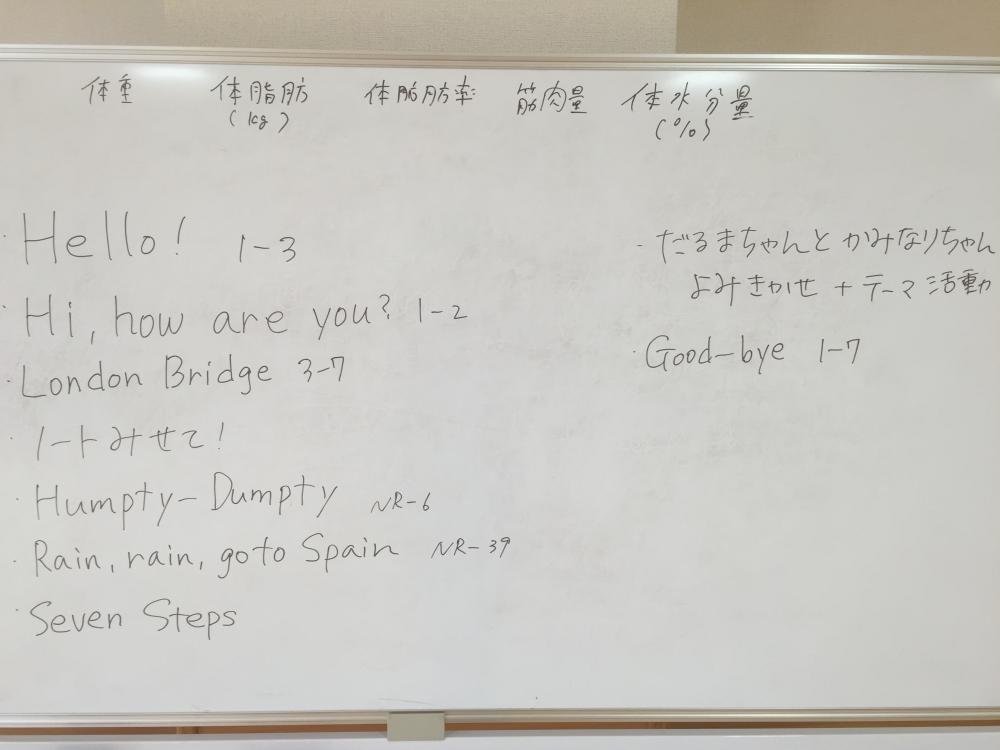 体重 体脂肪 体脂肪率 筋肉量 体水分量
(kg) (%)
・Hello! 1-3
・Hi, how are you? 1-2
・London Bridge 3-7
・ノートみせて!
・Humpty-Dumpty NR-6
・Rain, rain, go to Spain NR-39
・Seven Steps
・だるまちゃんとかみなりちゃん
よみきかせ+テーマ活動
・Good-bye 1-7